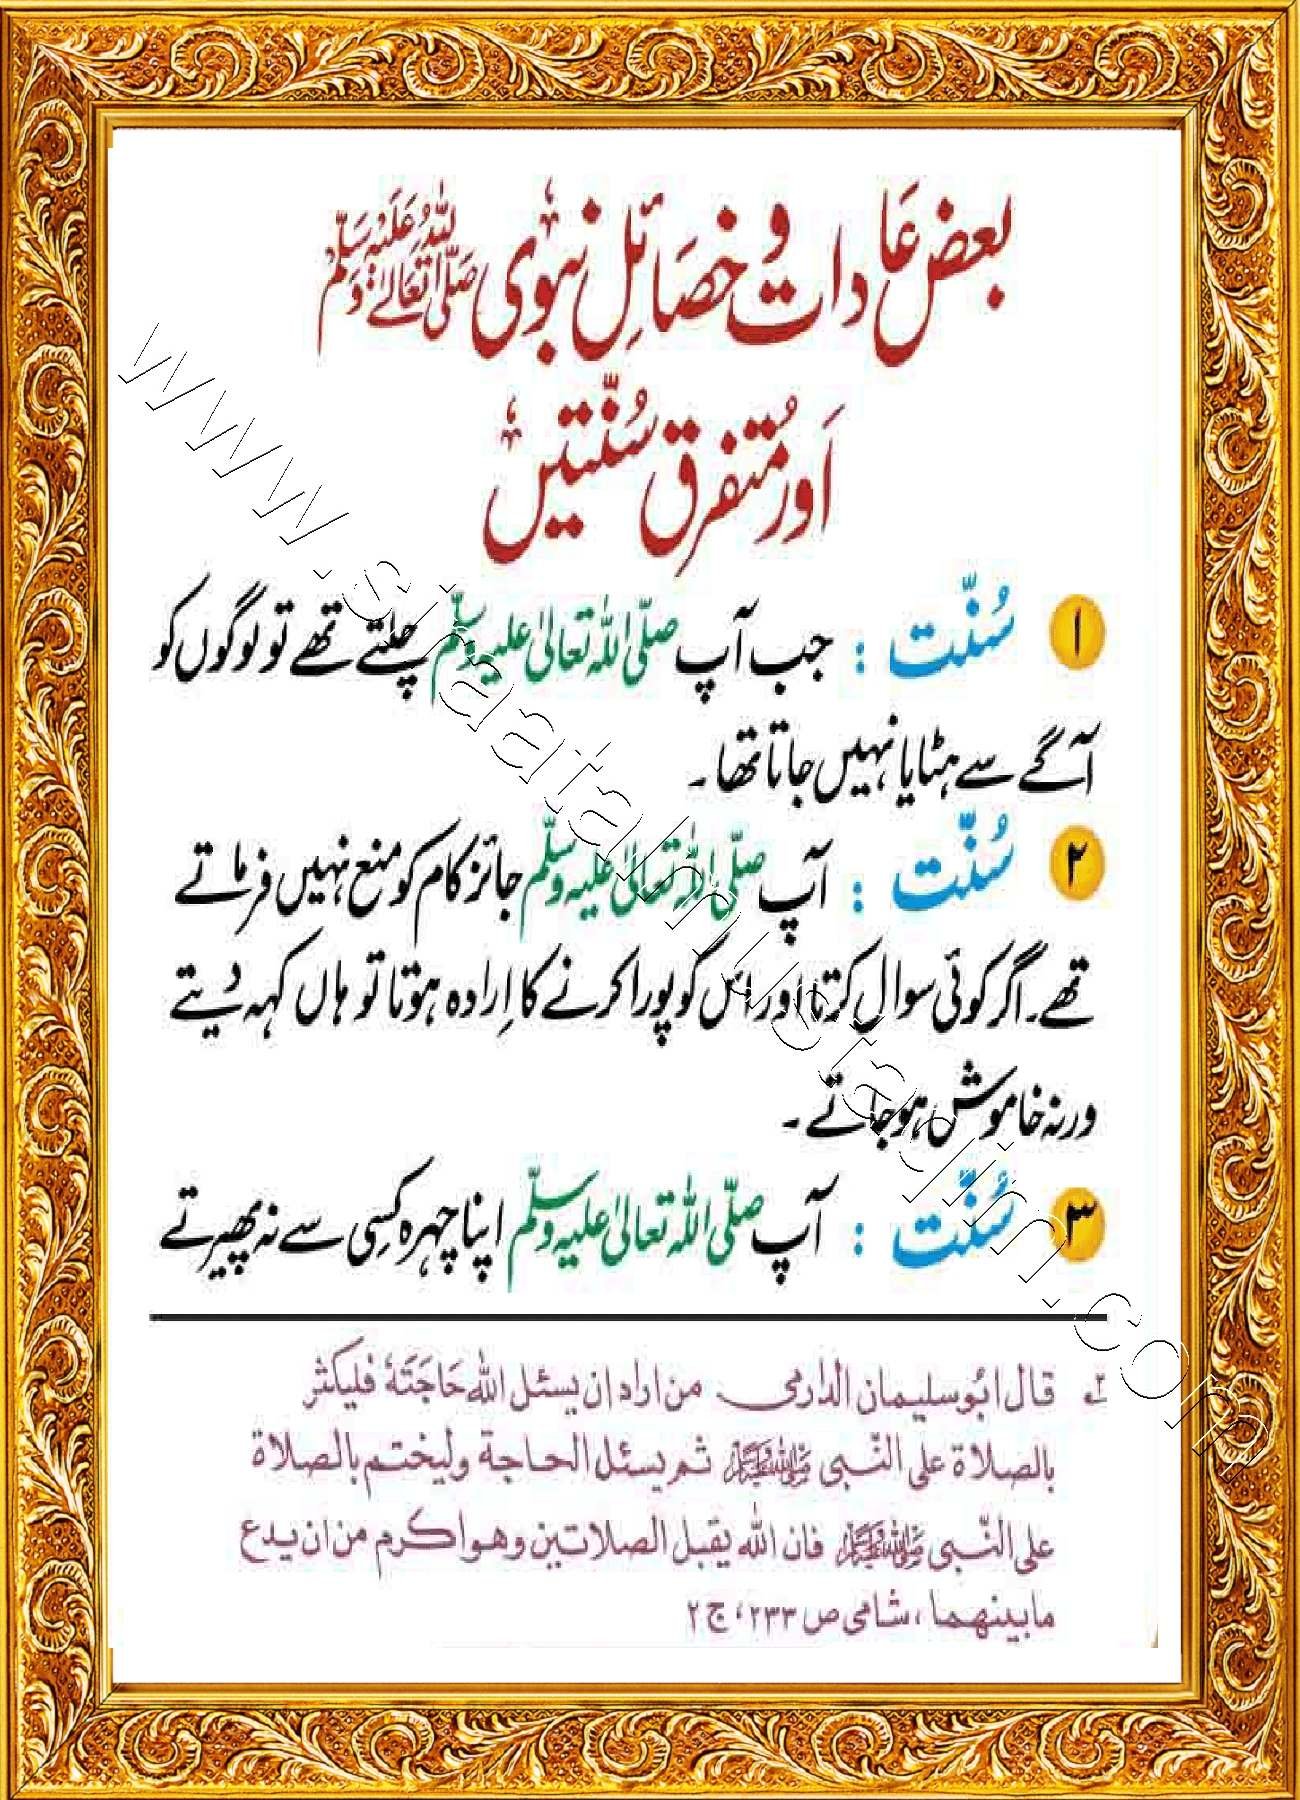 بعض عَادات و خصَائلِ نبوی صَلَّی اللہُ تَعَالیٰ عَلَیْہِ وَسَلَّم
اَور مُتفرق سُنّتیں
۱ سُنّت : جب آپ صلّی اللہ تعالیٰ علیہ وسلّم چلتے تھے تو لوگوں کو
آگے سے ہٹایا نہیں جاتا تھا۔
۲ سُنّت : آپ صلّی اللہ تعالیٰ علیہ وسلّم جائز کام کو منع نہیں فرماتے
تھے۔ اگر کوئی سوال کرتا اور اس کو پورا کرنے کا اِرادہ ہوتا تو ہاں کہہ دیتے
ورنہ خاموش ہوجاتے۔
۳ سُنّت : آپ صلّی اللہ تعالیٰ علیہ وسلّم اپنا چہرہ کسِی سے نہ پھیرتے
قال ابُو سلیمان الدارمی۔ من اراد ان یسئل اللہ حَاجَتَهٗ فلیکثر
بالصلاة علی النّبی ﷺ ثم یسئل الحاجة ولیختم بالصلاة
علی النّبی ﷺ فان اللہ یقبل الصلاتین وهو اکرم من ان یدع
مابینهما ، شامی ص ۲۳۳ ، ج ۲
www.siraatalmustaqim.com